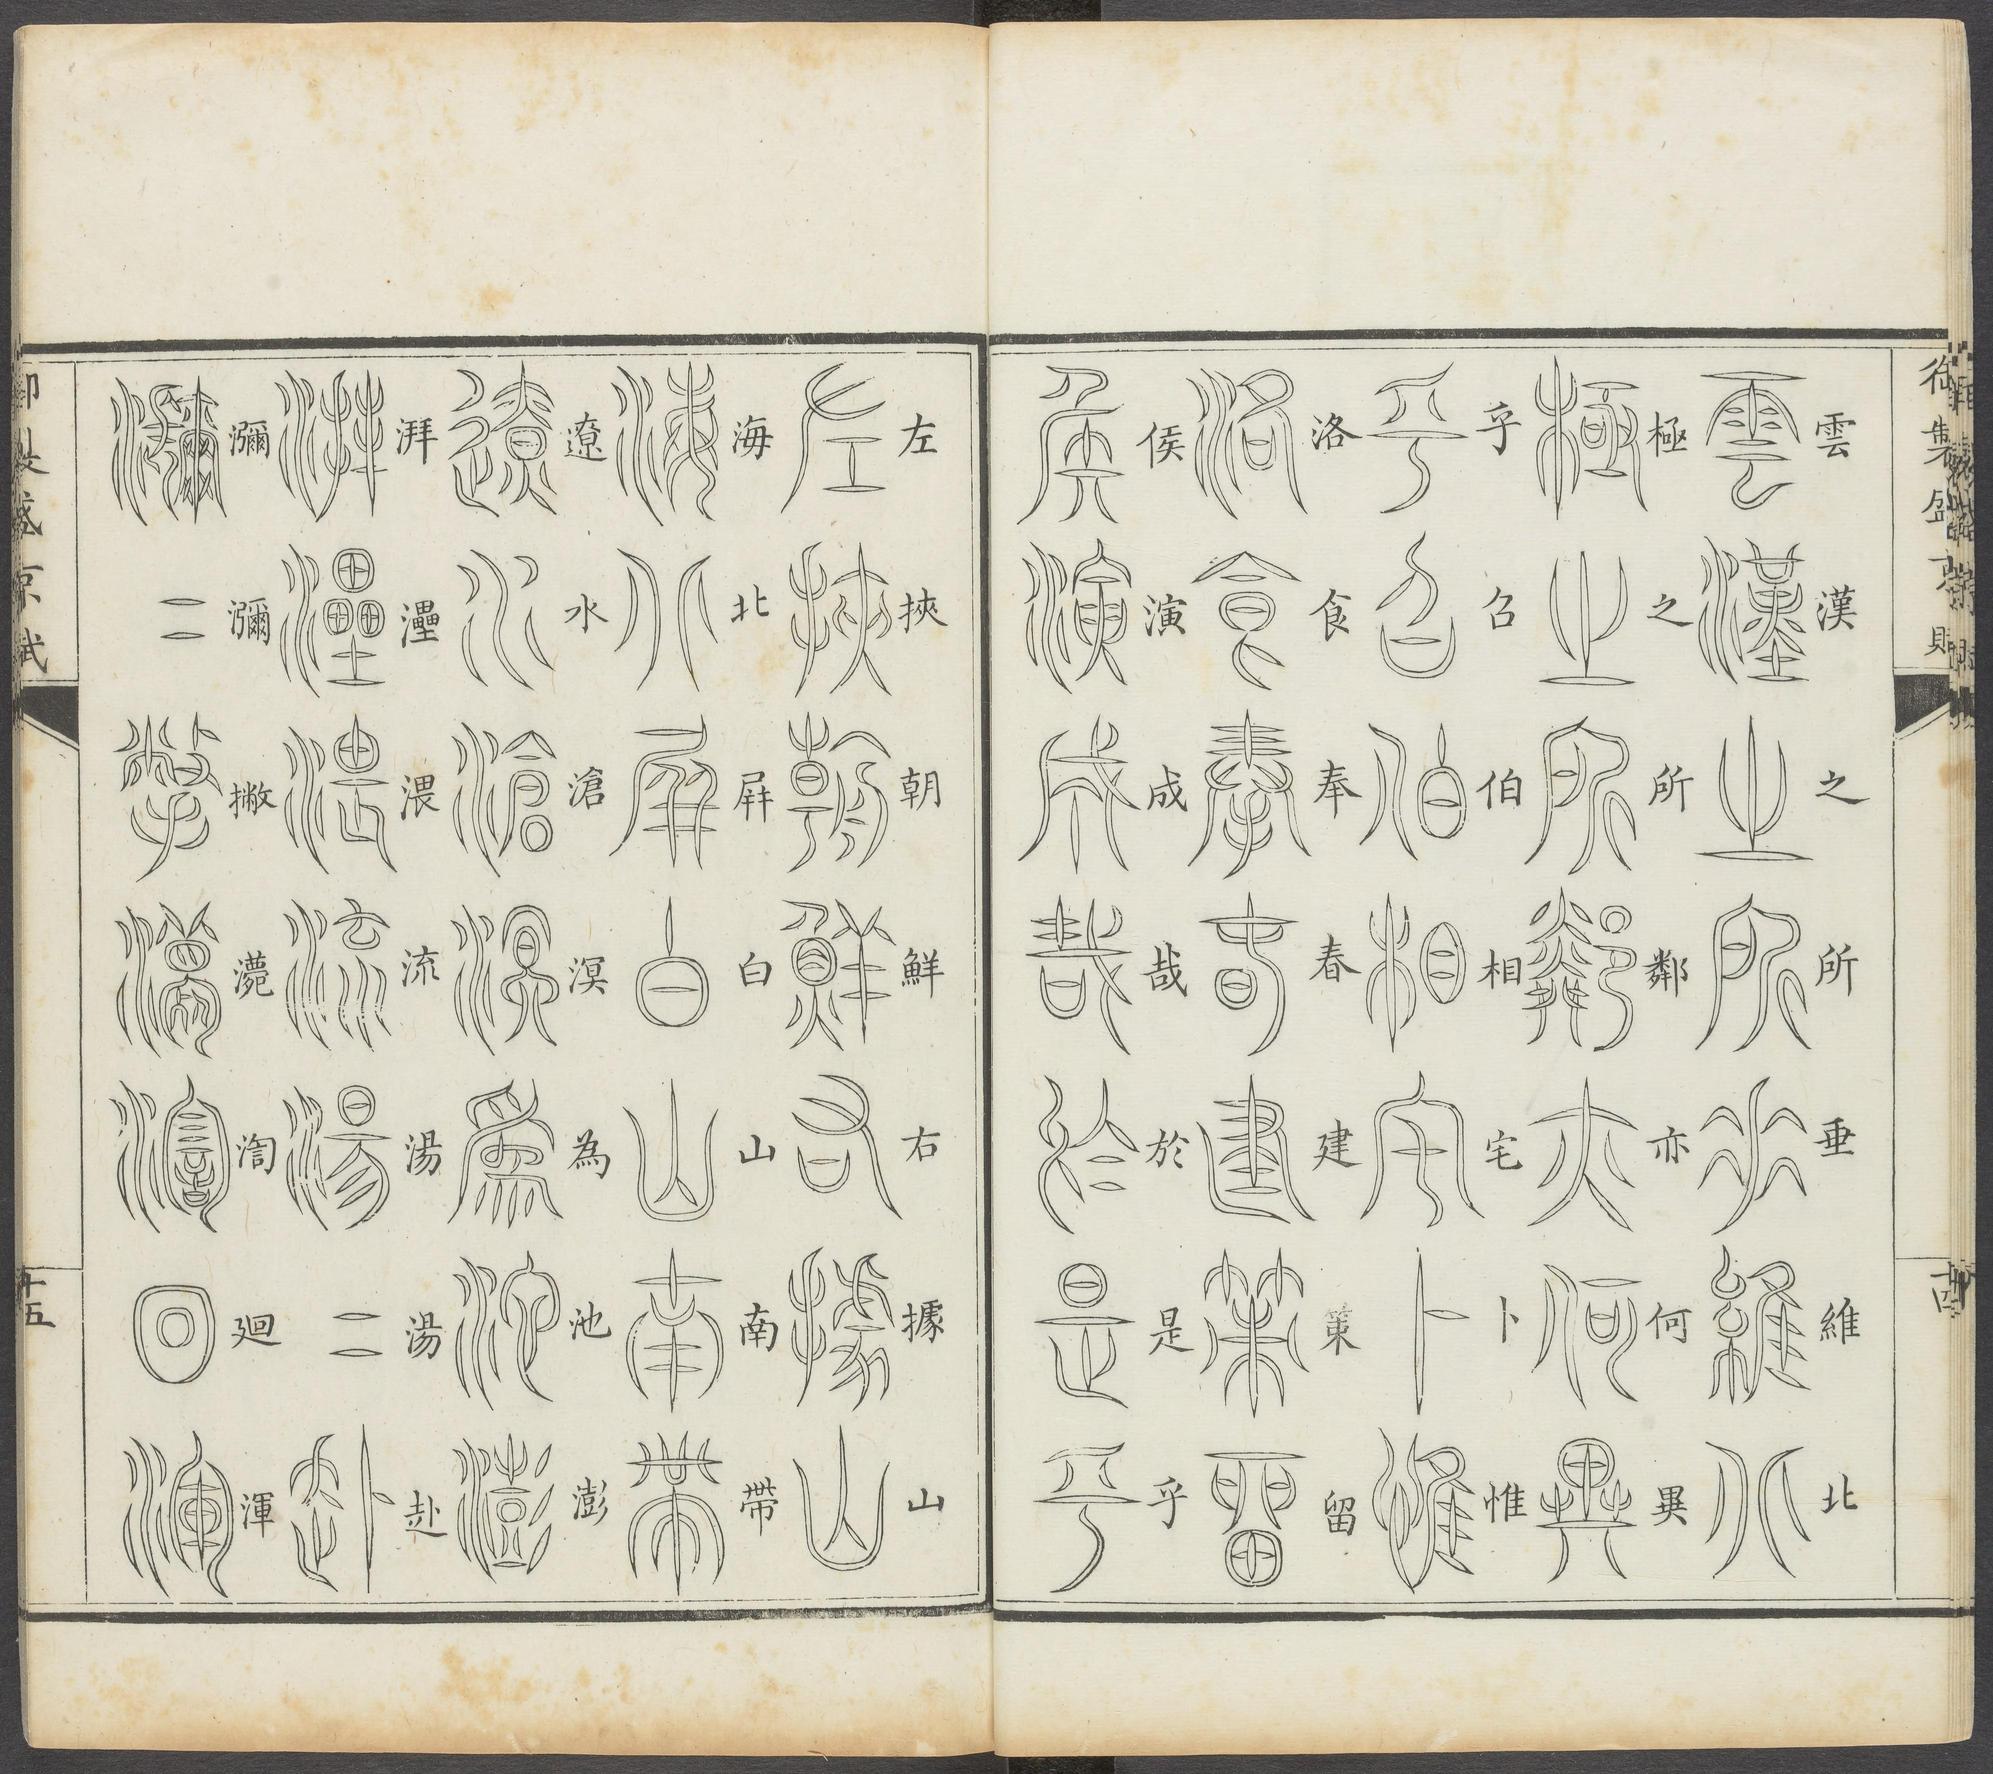 御製盛京賦
十四
雲漢之所垂維北
極之所鄰亦何異
乎召伯相宅卜惟
洛食奉春建策留
侯演成哉於是乎
左挾朝鮮右據山
海北屏白山南帶
遼水滄溟為池澎
湃灅渨流湯湯赴
瀰瀰撇渹廻渾
御製盛京賦
十五